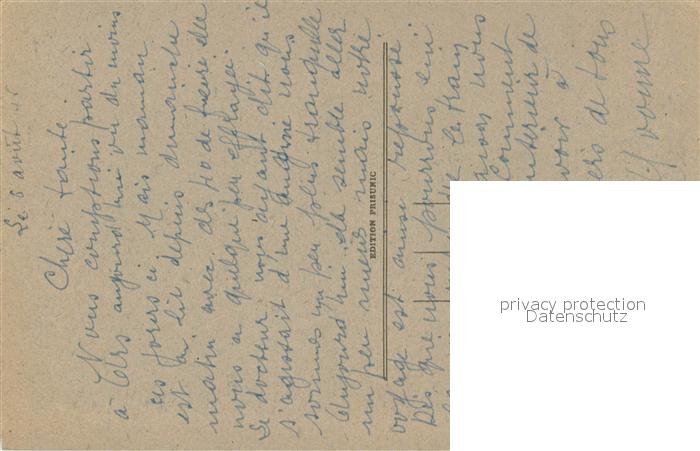 Le 8 août 45
Chère tante
Nous comptions partir
à Ars aujourd'hui ou du moins
ces jours ci Mais maman
est au lit depuis dimanche
matin avec des 40 de fièvre elle
nous a quelque peu effrayé.
Le docteur nous ayant dit qu'il
s'agissait d'une angine nous
sommes un peu plus tranquille
Aujourd'hui elle semble aller
un peu mieux mais notre
voyage est remise
Dès que nous pourrons
le train
nous
Comment
voir à
de tous
Yvonne
EDITION PRISUNIC
privacy protection
Datenschutz